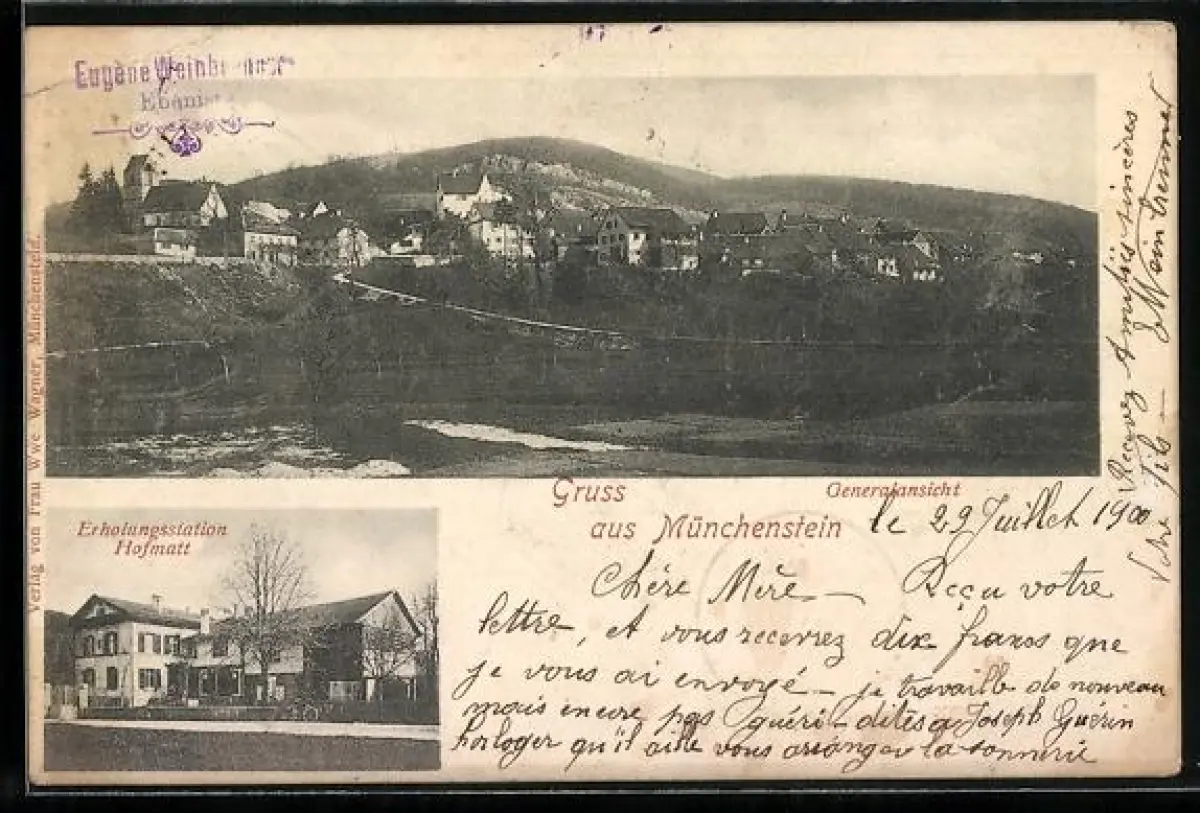 Eugène
Gruss
aus Münchenstein
Generalansicht
Erholungsstation
Hofmatt
Verlag von Frau Wwe Wagner, Münchensteinfeld.
le 29 Juillet 1900
Chère Mère — Reçu votre
lettre, et vous recevrez dix francs que
je vous ai envoyé — je travaille de nouveau
mais encore pas guéri — dites a Joseph Guérin
horloger qu'il aille vous arranger la sonnerie
Recevez Amitiés sincères
Votre fils —